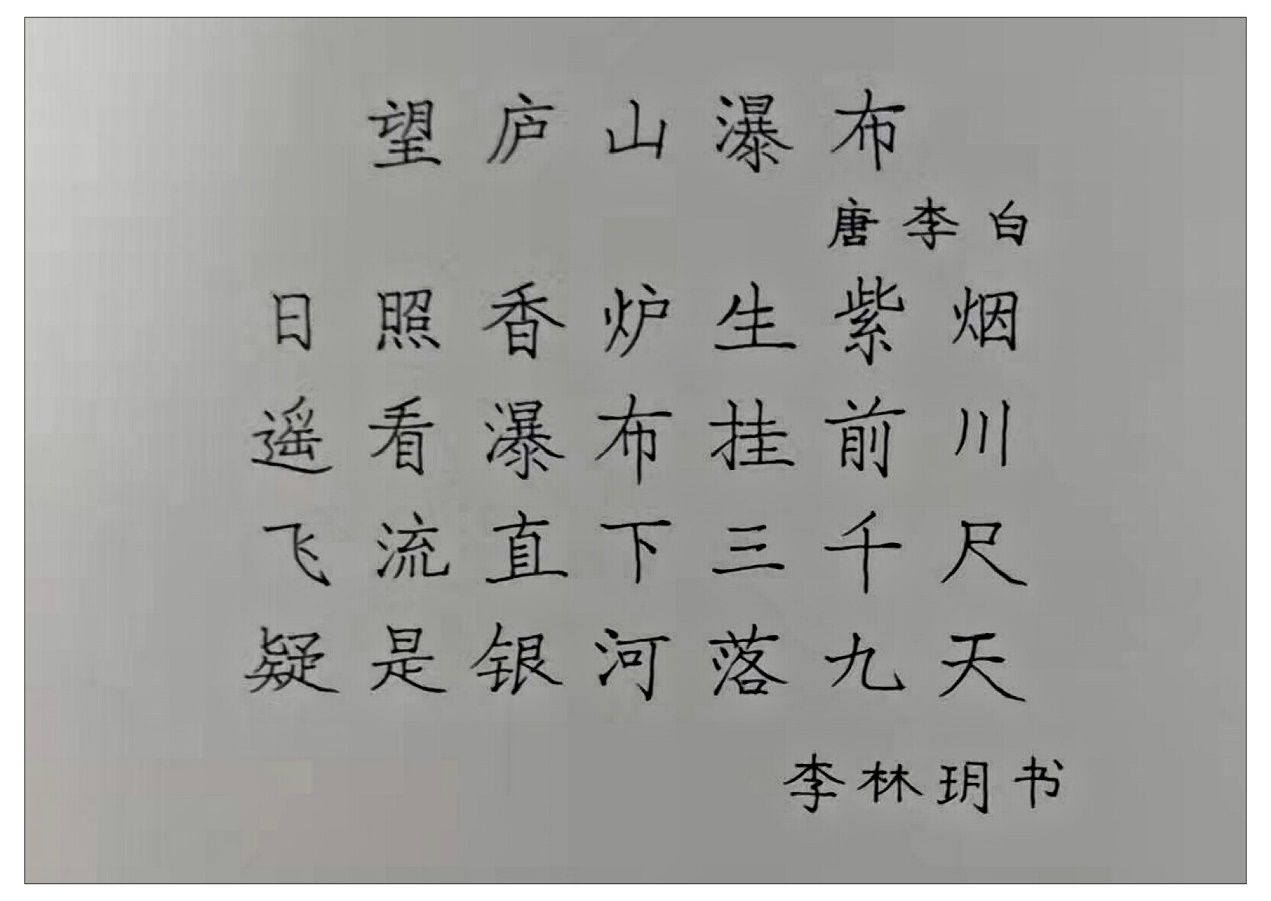 望庐山瀑布
唐李白
日照香炉生紫烟
遥看瀑布挂前川
飞流直下三千尺
疑是银河落九天
李林玥书